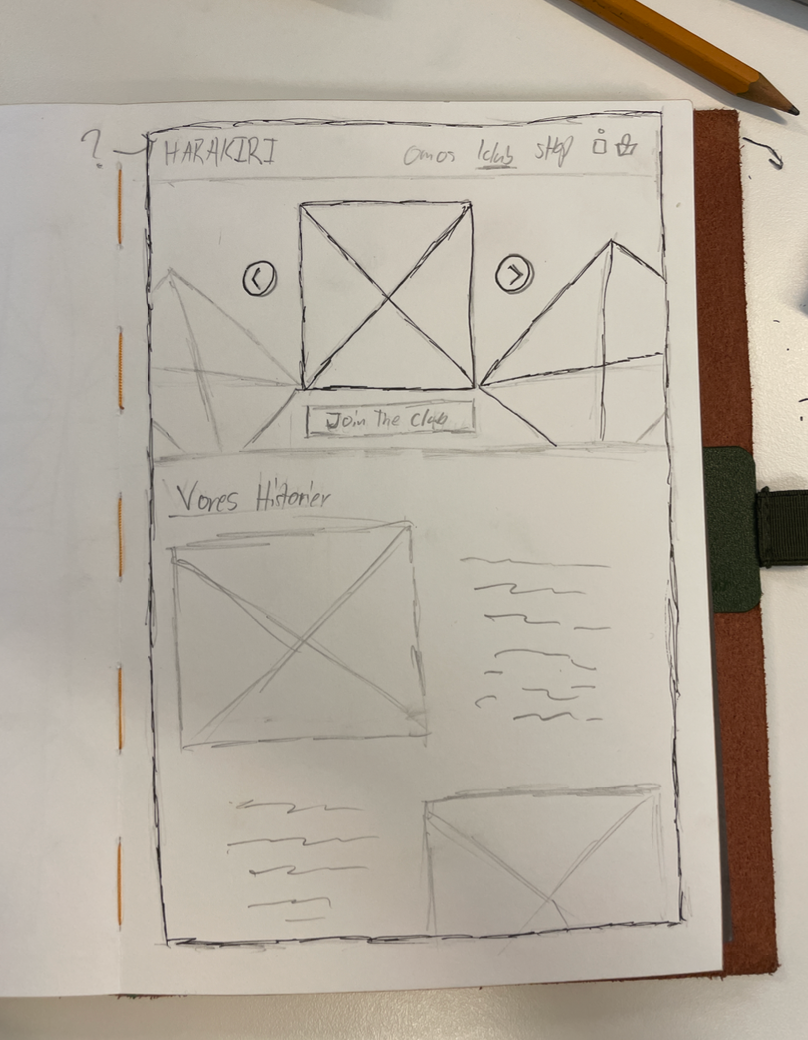 ? HARAKIRI Om os klub shop
Join The Club
Vores Historier